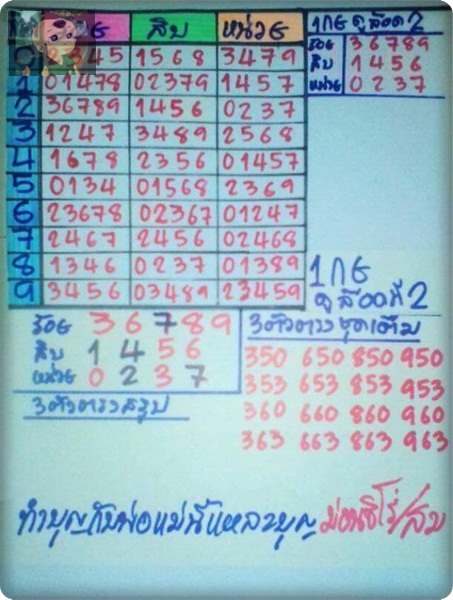 สิบ หน่วย
2345 1568 3479
1 01478 02379 1457
2 36789 1456 0237
3 1247 3489 2568
4 1678 2356 01457
5 0134 01568 2369
6 23678 02367 01247
7 2467 2456 02468
8 1346 0237 01389
9 3456 03489 23459
ดูล๊อคที่ 2
ร้อย 36789
สิบ 1456
หน่วย 0237
ร้อย 36789
สิบ 1456
หน่วย 0237
3ตัวตรงสรุป
ดูล๊อคที่ 2
3ตัวตรงชุดเต็ม
350 650 850 950
353 653 853 953
360 660 860 960
363 663 863 963
ทำบุญกับพ่อแม่นี่แหละบุญ